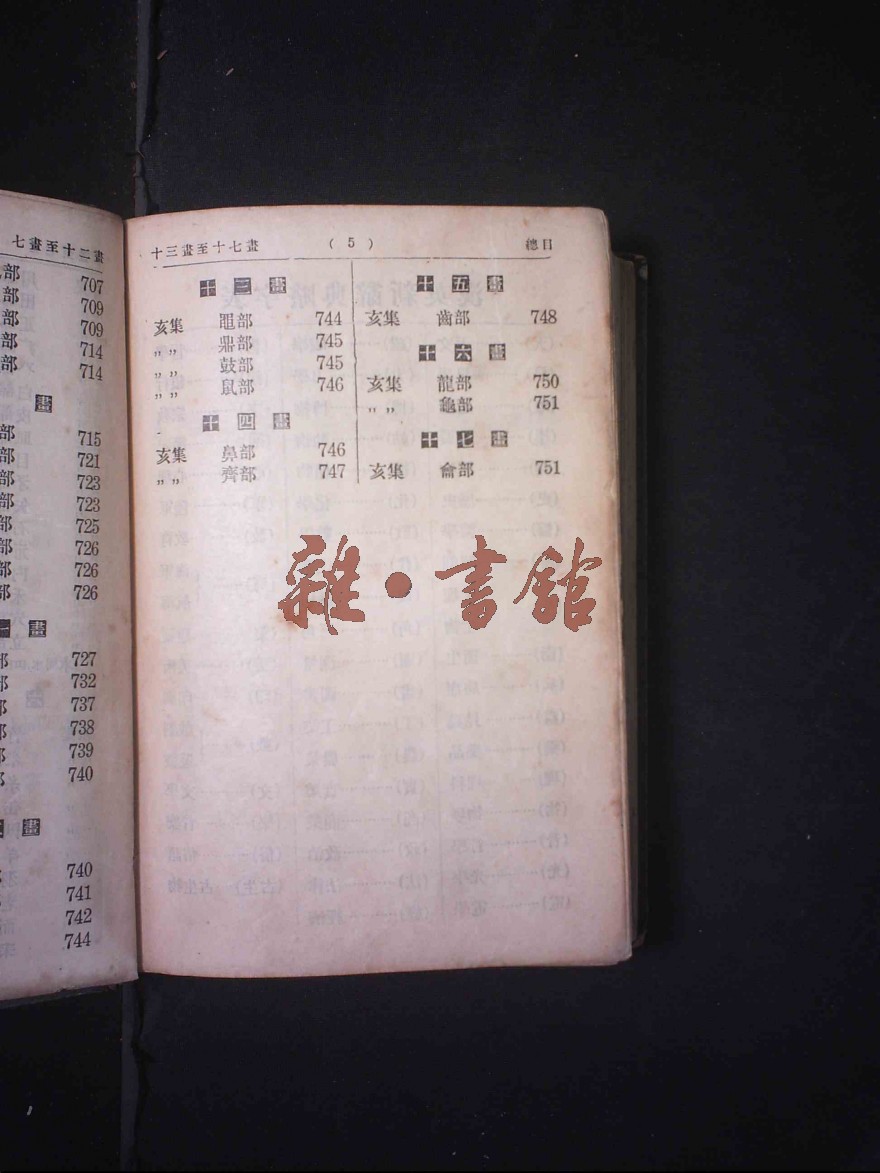 七畫至十二畫
部 707
部 709
部 709
部 714
部 714
畫
部 715
部 721
部 723
部 723
部 725
部 726
部 726
部 726
一畫
部 727
部 732
737
738
739
740
畫
740
741
742
744
十三畫至十七畫 (5) 總目
十三畫
亥集 黽部 744
〃〃 鼎部 745
〃〃 鼓部 745
〃〃 鼠部 746
十四畫
亥集 鼻部 746
〃〃 齊部 747
十五畫
亥集 齒部 748
十六畫
亥集 龍部 750
〃〃 龜部 751
十七畫
亥集 龠部 751
雜·書館